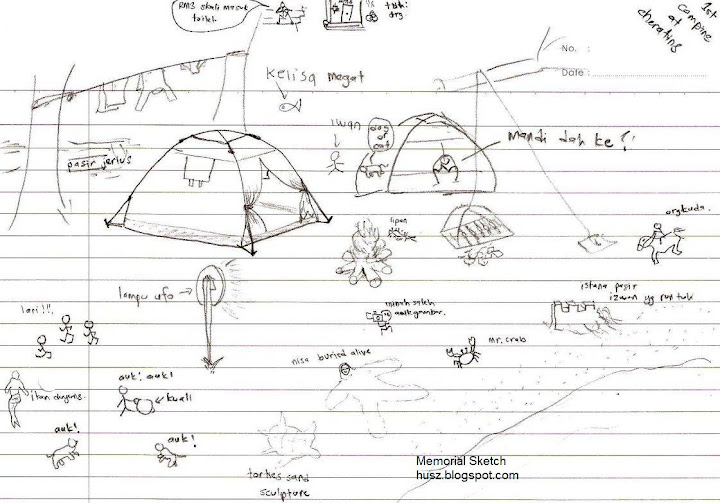 RM3 skali masuk
toilet.
1st
campine
at
cherating
No. :
Date :
kelisa magat
iwan
dog
or
cat
mandi dah ke?!
pasir jerlus
lipan
orgkuda.
lampu ufo →
istana pasir
izwan yg runtuh
lari!!!
minah saleh
amik gambar.
Mr. crab
nisa buried alive
auk! auk!
kuali
ikan duyung.
auk!
auk!
tortles sand
sculpture
Memorial Sketch
husz.blogspot.com